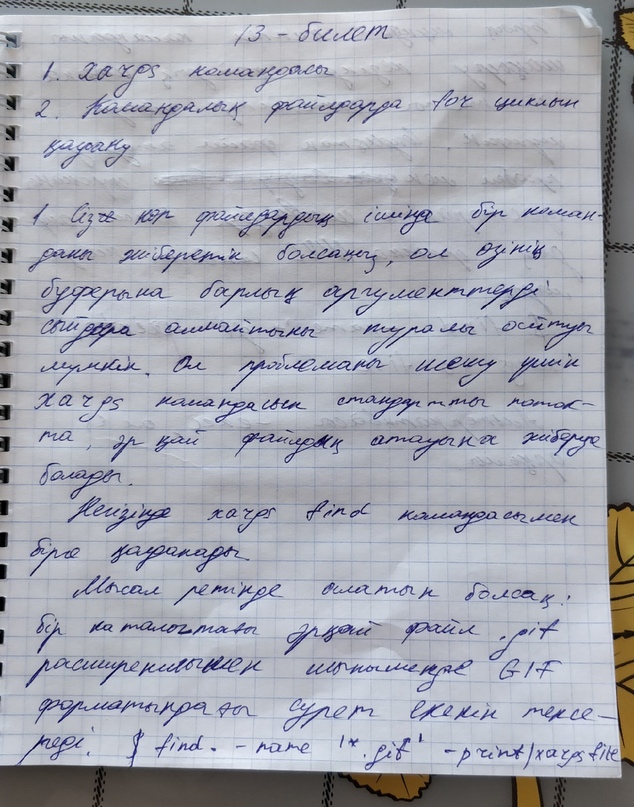 13 - билет
1. xargs командасы
2. Командалық файлдарда for циклын
қолдану
1 Сізге көп файлдардың ішінде бір коман-
даны жіберетін болсаңыз, ол өзінің
буферына барлық аргументтерді
сыйдыра алмайтыны туралы айтуы
мүмкін. Ол проблеманы шешу үшін
xargs командасын стандартты поток-
та, әр қай файлдың атауына жіберуге
болады.
Негізінде xargs find командасымен
бірге қолданады
Мысал ретінде алатын болсақ:
бір каталогтағы әрқай файл .gif
расширениымен шынымен де GIF
форматындағы сурет екенін тексе-
реді. $ find . -name '*.gif' -print/xargs file